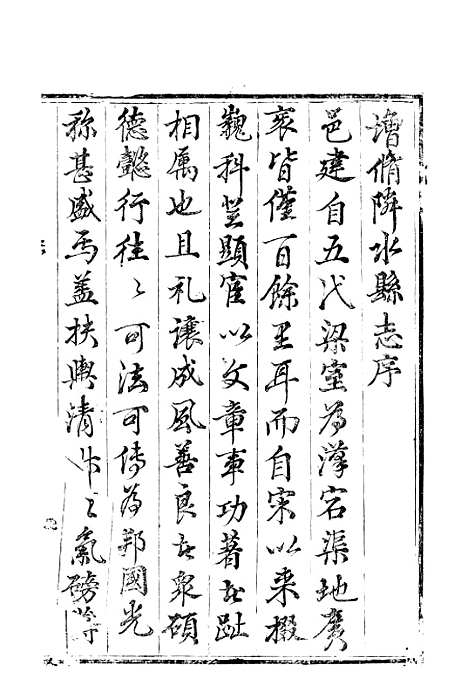 譄脩隣水縣志序
邑建自五代梁室為漢宕渠地廣
袤皆僅百餘里耳而自宋以来掇
巍科登顯宦以文章事功著者趾
相属也且礼讓成風善良者衆碩
德懿行往〻可法可傳為邦國光
称甚盛焉盖扶輿清淑之氣磅礴